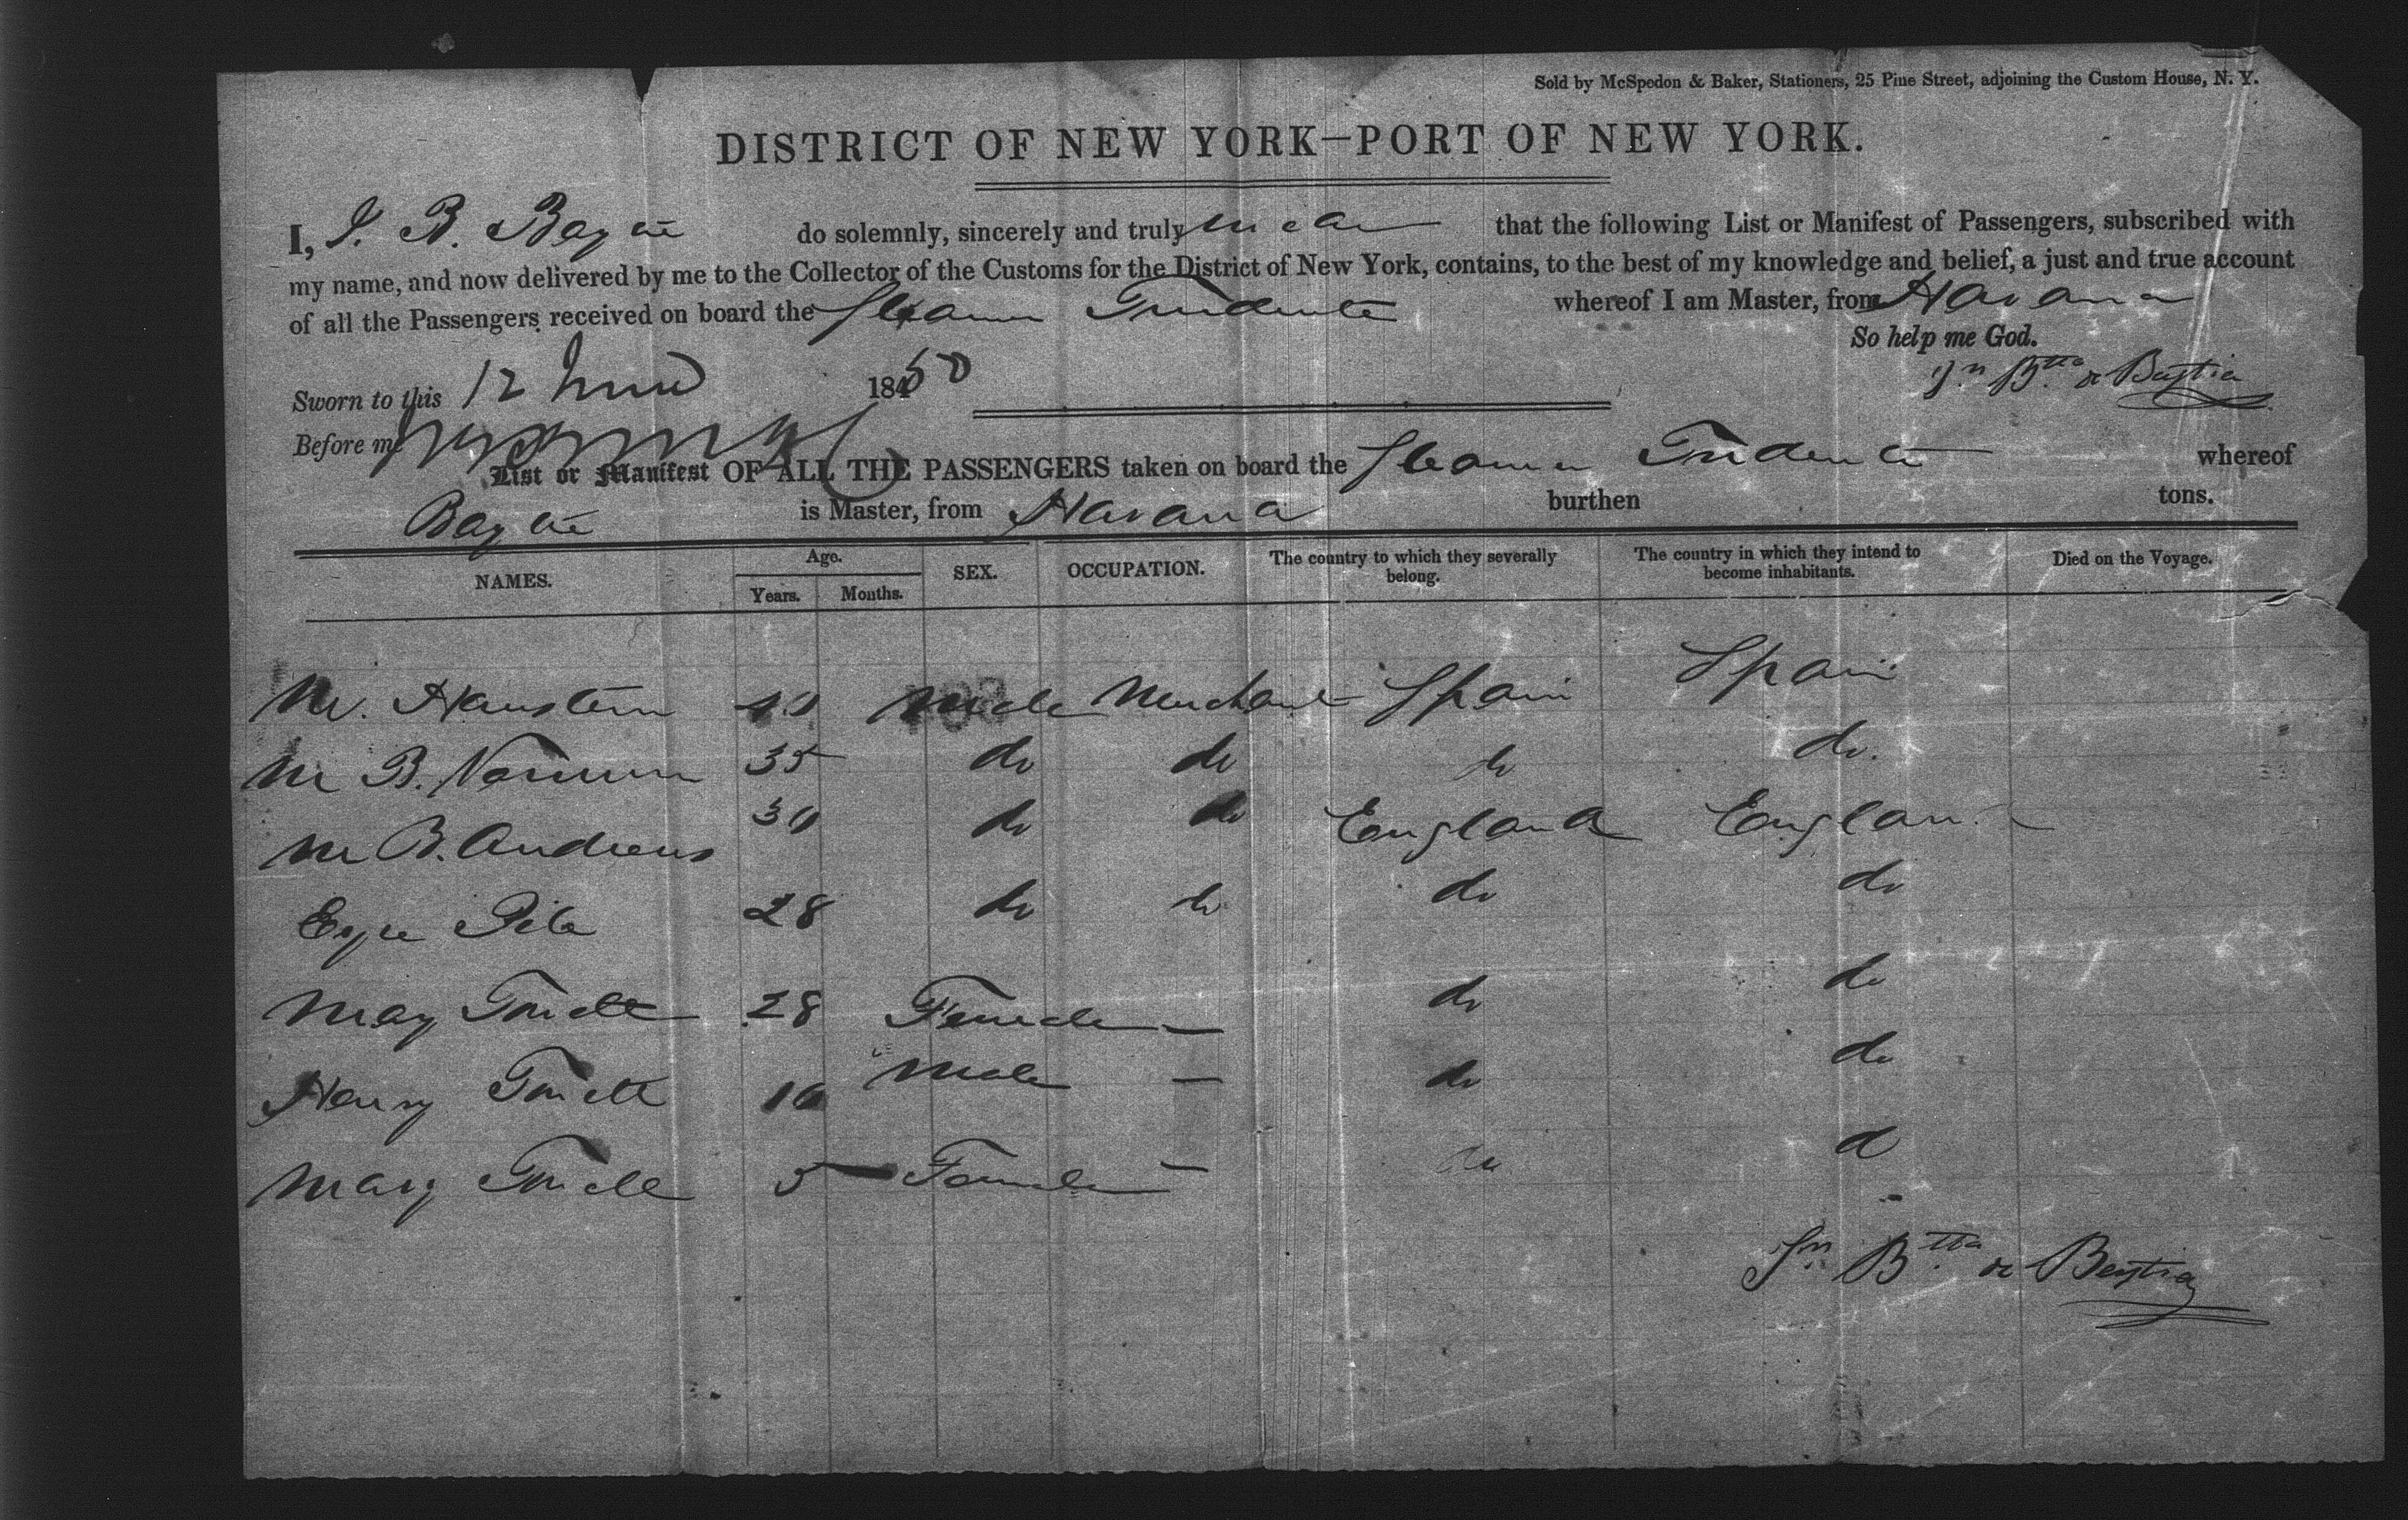 Sold by McSpedon & Baker, Stationers, 25 Pine Street, adjoining the Custom House, N. Y.
DISTRICT OF NEW YORK—PORT OF NEW YORK.
I, J. B. do solemnly, sincerely and truly swear that the following List or Manifest of Passengers, subscribed with
my name, and now delivered by me to the Collector of the Customs for the District of New York, contains, to the best of my knowledge and belief, a just and true account
of all the Passengers received on board the Steamer Tridente whereof I am Master, from Havana
So help me God.
Sworn to this 12 June 1850 Jn Btta de Beytia
Before me
List or Manifest OF ALL THE PASSENGERS taken on board the Steamer Tridente whereof
is Master, from Havana burthen tons.
NAMES. Age. Years. Months. SEX. OCCUPATION. The country to which they severally belong. The country in which they intend to become inhabitants. Died on the Voyage.
M. Male Merchant Spain Spain
Mr B. 35 do do do do.
Mr B. Andrews 30 do do England England
28 do do do do
28 Female — do do
Henry 10 Male — do do
Mary 5 Female — do d
Jn Btta de Beytia